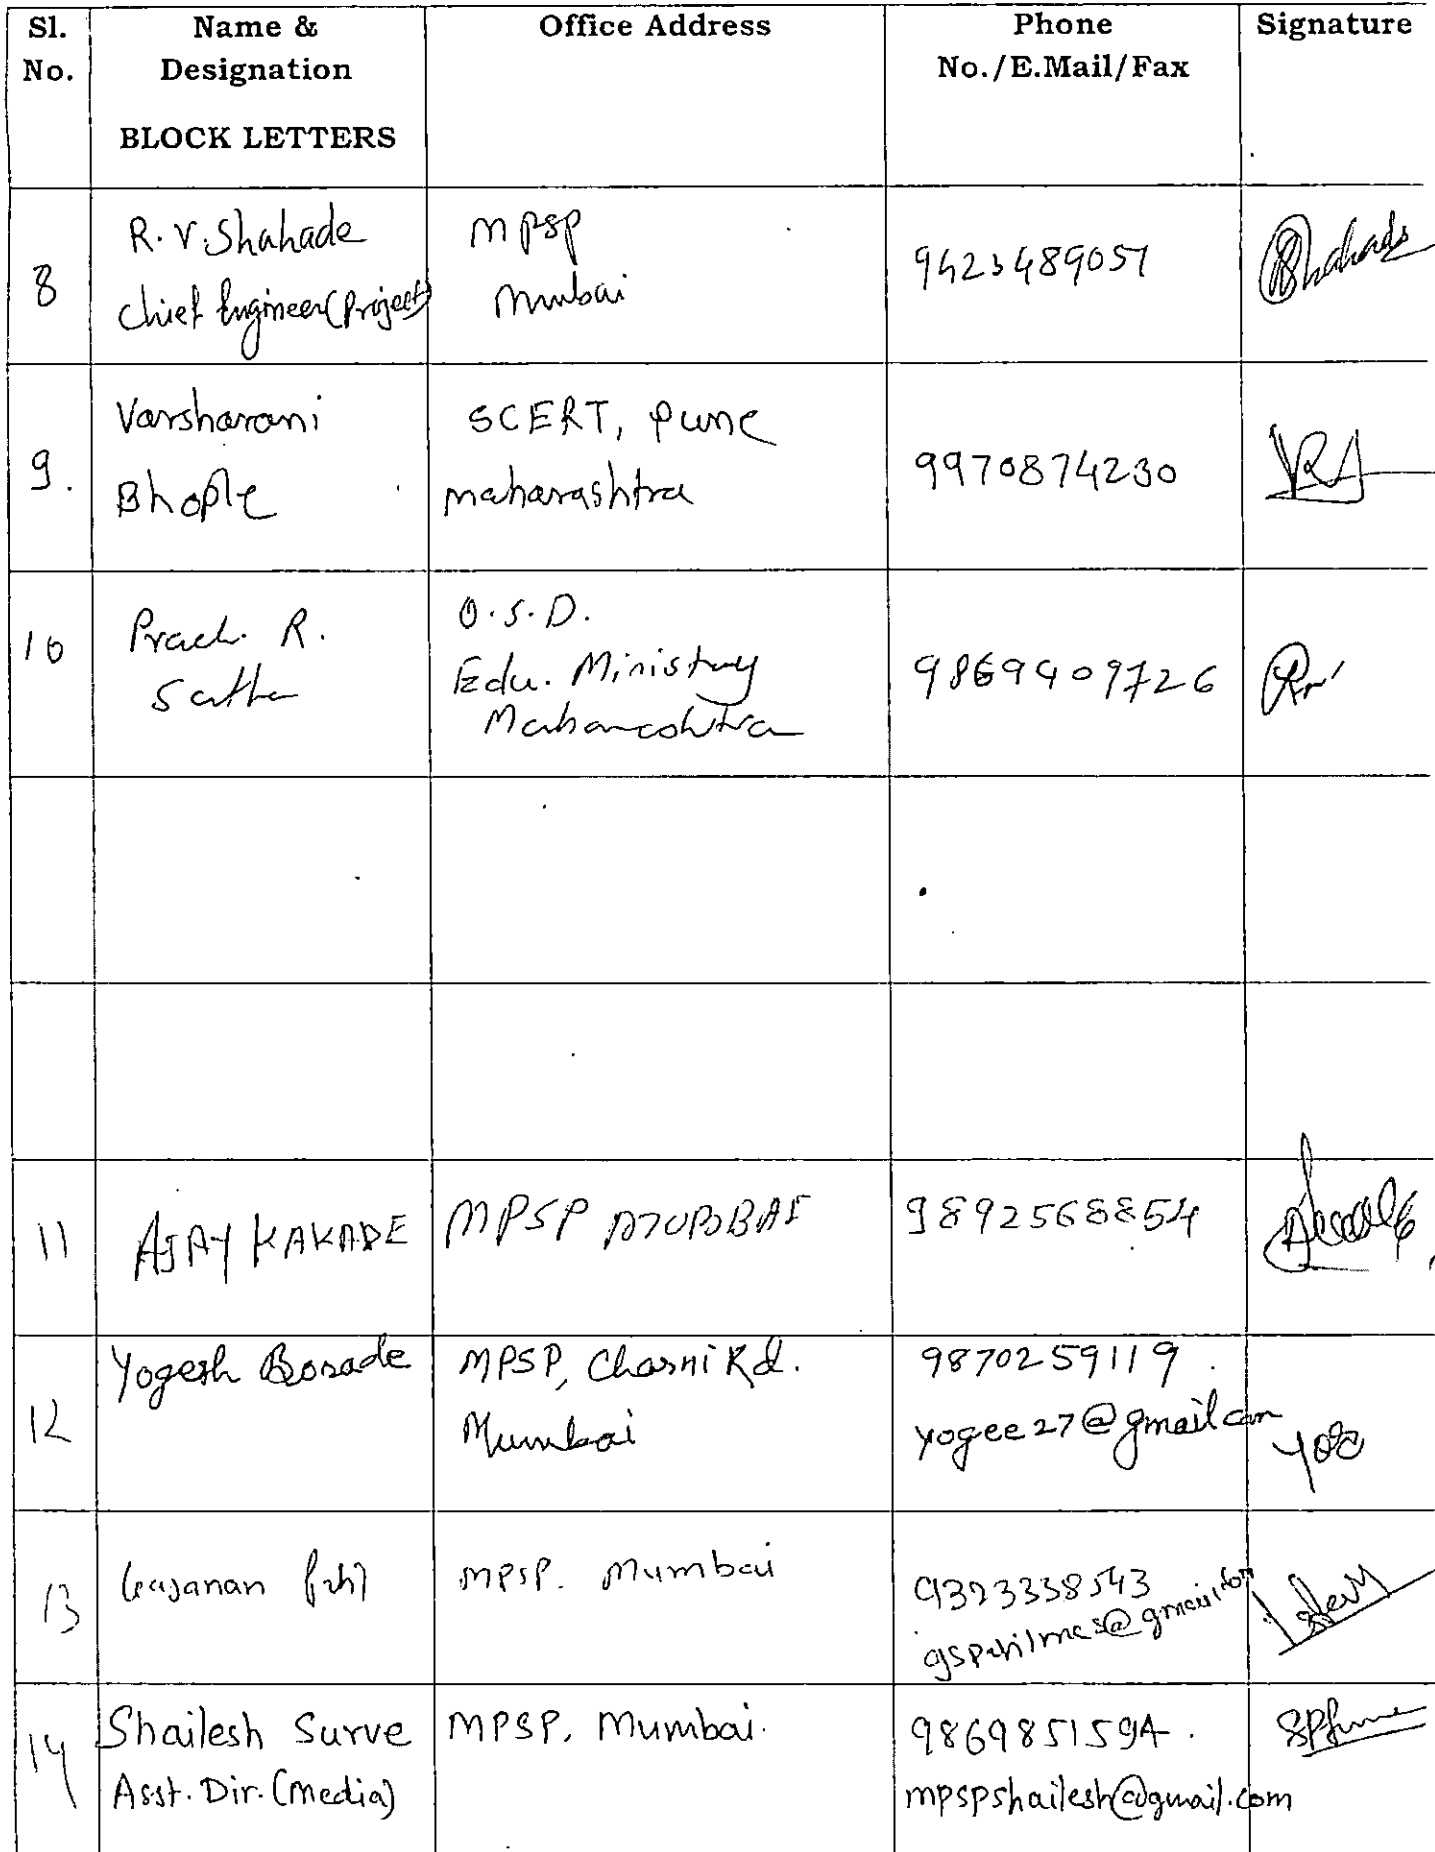 Sl. No.
Name & Designation
BLOCK LETTERS
Office Address
Phone No./E.Mail/Fax
Signature
8
R.V. Shahade
Chief Engineer (Project)
MPSP
Mumbai
9423489051
Shahade
9.
Varsharani
Bhople
SCERT, Pune
maharashtra
9970874230
10
Prachi R.
Sathe
O.S.D.
Edu. Ministry
Maharashtra
9869409726
11
AJAY KAKADE
MPSP MUMBAI
9892568854
12
Yogesh Borade
MPSP, Charni Rd.
Mumbai
9870259119.
yogee27@gmail.com
13
Gajanan Patil
MPSP. Mumbai
9323338543
14
Shailesh Surve
Asst. Dir. (Media)
MPSP, Mumbai.
9869851594.
mpspshailesh@gmail.com